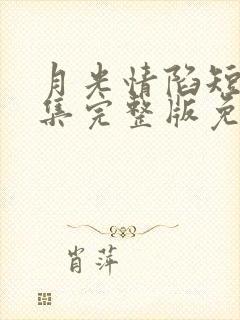 月光情陷短
集完整版免
肖萍